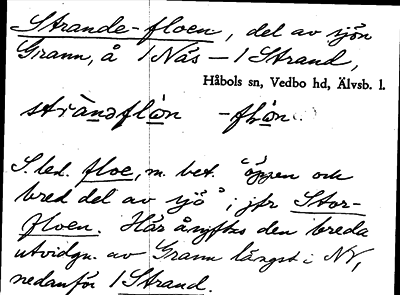 Strande-floen, del av sjön
Grann, å 1 Näs – 1 Strand,
Håbols sn, Vedbo hd, Älvsb. l.
strändflòn -flòn
S. led. floe, m. bet. "öppen och
bred del av sjö"; jfr Stor-
floen. Här åsyftas den breda
utvidgn. av Grann längst i NV,
nedanför 1 Strand.